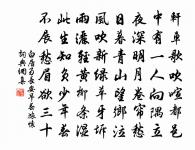 軒車歌吹喧都邑
中有一人向隅立
夜深明月卷帘愁
日暮青山望鄉泣
風吹新綠草牙坼
雨灑輕黃柳條濕
此生知負少年春
不展愁眉欲三十
白居易長安早春旅懷
詞典網集